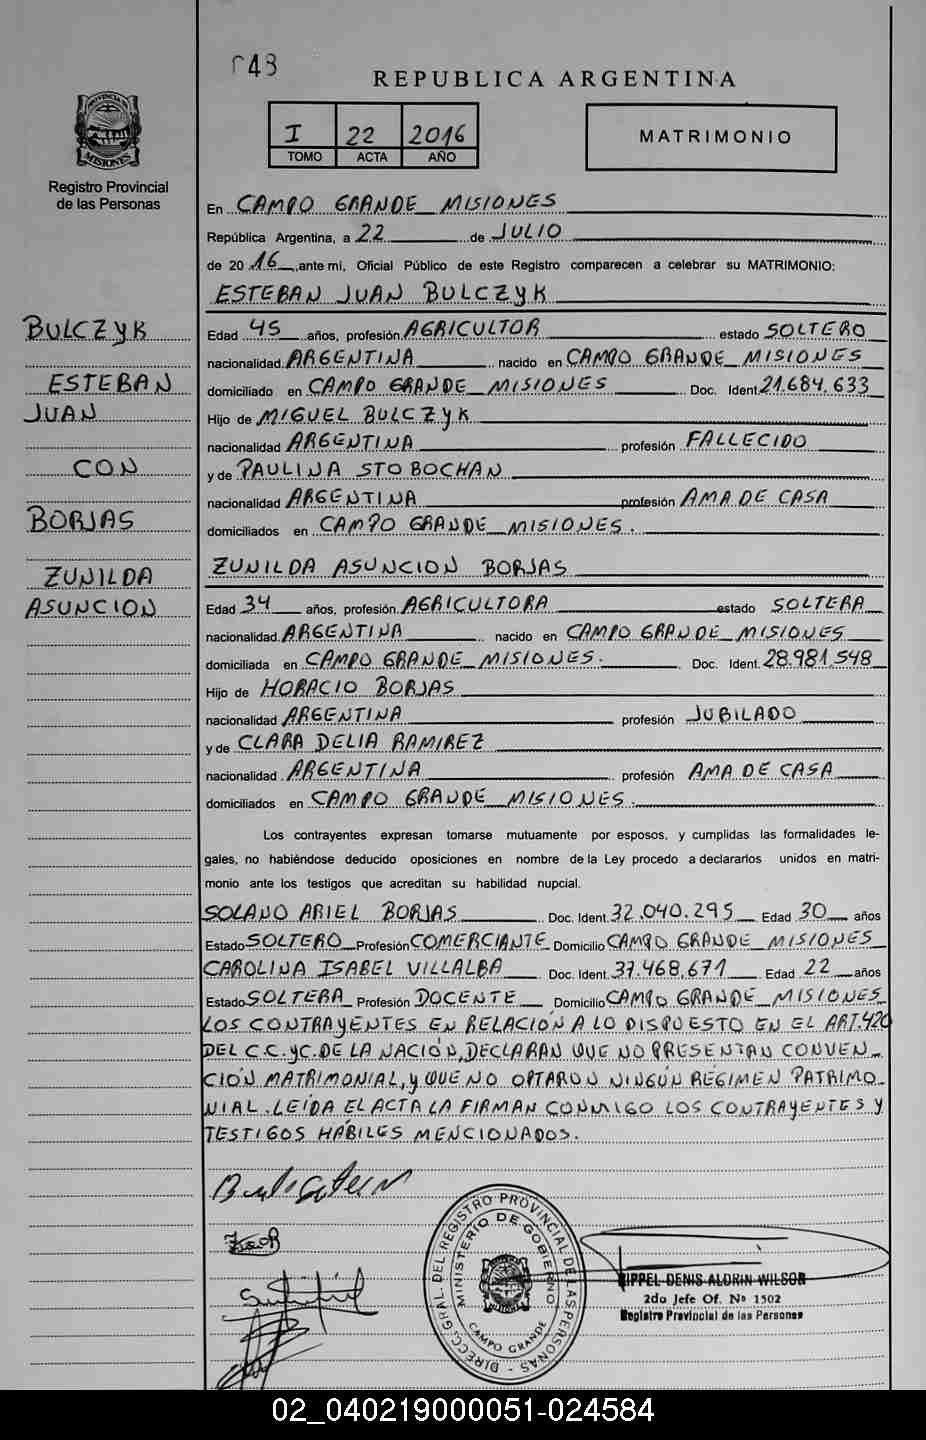 048
REPUBLICA ARGENTINA
I 22 2016
TOMO ACTA AÑO
MATRIMONIO
PROVINCIA DE
MISIONES
Registro Provincial
de las Personas
En CAMPO GRANDE MISIONES
República Argentina, a 22 de JULIO
de 20 16 ,ante mi, Oficial Público de este Registro comparecen a celebrar su MATRIMONIO:
ESTEBAN JUAN BULCZYK
BULCZYK
ESTEBAN
JUAN
CON
BORJAS
ZUNILDA
ASUNCION
Edad 45 años, profesión AGRICULTOR estado SOLTERO
nacionalidad ARGENTINA nacido en CAMPO GRANDE MISIONES
domiciliado en CAMPO GRANDE MISIONES Doc. Ident. 21.684.633
Hijo de MIGUEL BULCZYK
nacionalidad ARGENTINA profesión FALLECIDO
y de PAULINA STOBOCHAN
nacionalidad ARGENTINA profesión AMA DE CASA
domiciliados en CAMPO GRANDE MISIONES.
ZUNILDA ASUNCION BORJAS
Edad 34 años, profesión AGRICULTORA estado SOLTERA
nacionalidad ARGENTINA nacido en CAMPO GRANDE MISIONES
domiciliada en CAMPO GRANDE MISIONES. Doc. Ident. 28.981.548
Hijo de HORACIO BORJAS
nacionalidad ARGENTINA profesión JUBILADO
y de CLARA DELIA RAMIREZ
nacionalidad ARGENTINA profesión AMA DE CASA
domiciliados en CAMPO GRANDE MISIONES.
Los contrayentes expresan tomarse mutuamente por esposos, y cumplidas las formalidades le-
gales, no habiéndose deducido oposiciones en nombre de la Ley procedo a declararlos unidos en matri-
monio ante los testigos que acreditan su habilidad nupcial.
SOLANO ARIEL BORJAS Doc. Ident. 32.040.295 Edad 30 años
Estado SOLTERO Profesión COMERCIANTE Domicilio CAMPO GRANDE MISIONES
CAROLINA ISABEL VILLALBA Doc. Ident. 37.468.671 Edad 22 años
Estado SOLTERA Profesión DOCENTE Domicilio CAMPO GRANDE MISIONES
LOS CONTRAYENTES EN RELACIÓN A LO DISPUESTO EN EL ART.420
DEL C.C.YC. DE LA NACIÓN, DECLARAN QUE NO PRESENTAN CONVEN-
CIÓN MATRIMONIAL, Y QUE NO OPTARON NINGÚN RÉGIMEN PATRIMO-
NIAL. LEÍDA EL ACTA LA FIRMAN CONMIGO LOS CONTRAYENTES Y
TESTIGOS HÁBILES MENCIONADOS.
DIRECC. GRAL. DEL REGISTRO PROVINCIAL DE LAS PERSONAS
MINISTERIO DE GOBIERNO
CAMPO GRANDE
RIPPEL DENIS ALDRIN WILSON
2do Jefe Of. Nº 1502
Registro Provincial de las Personas
02_040219000051-024584